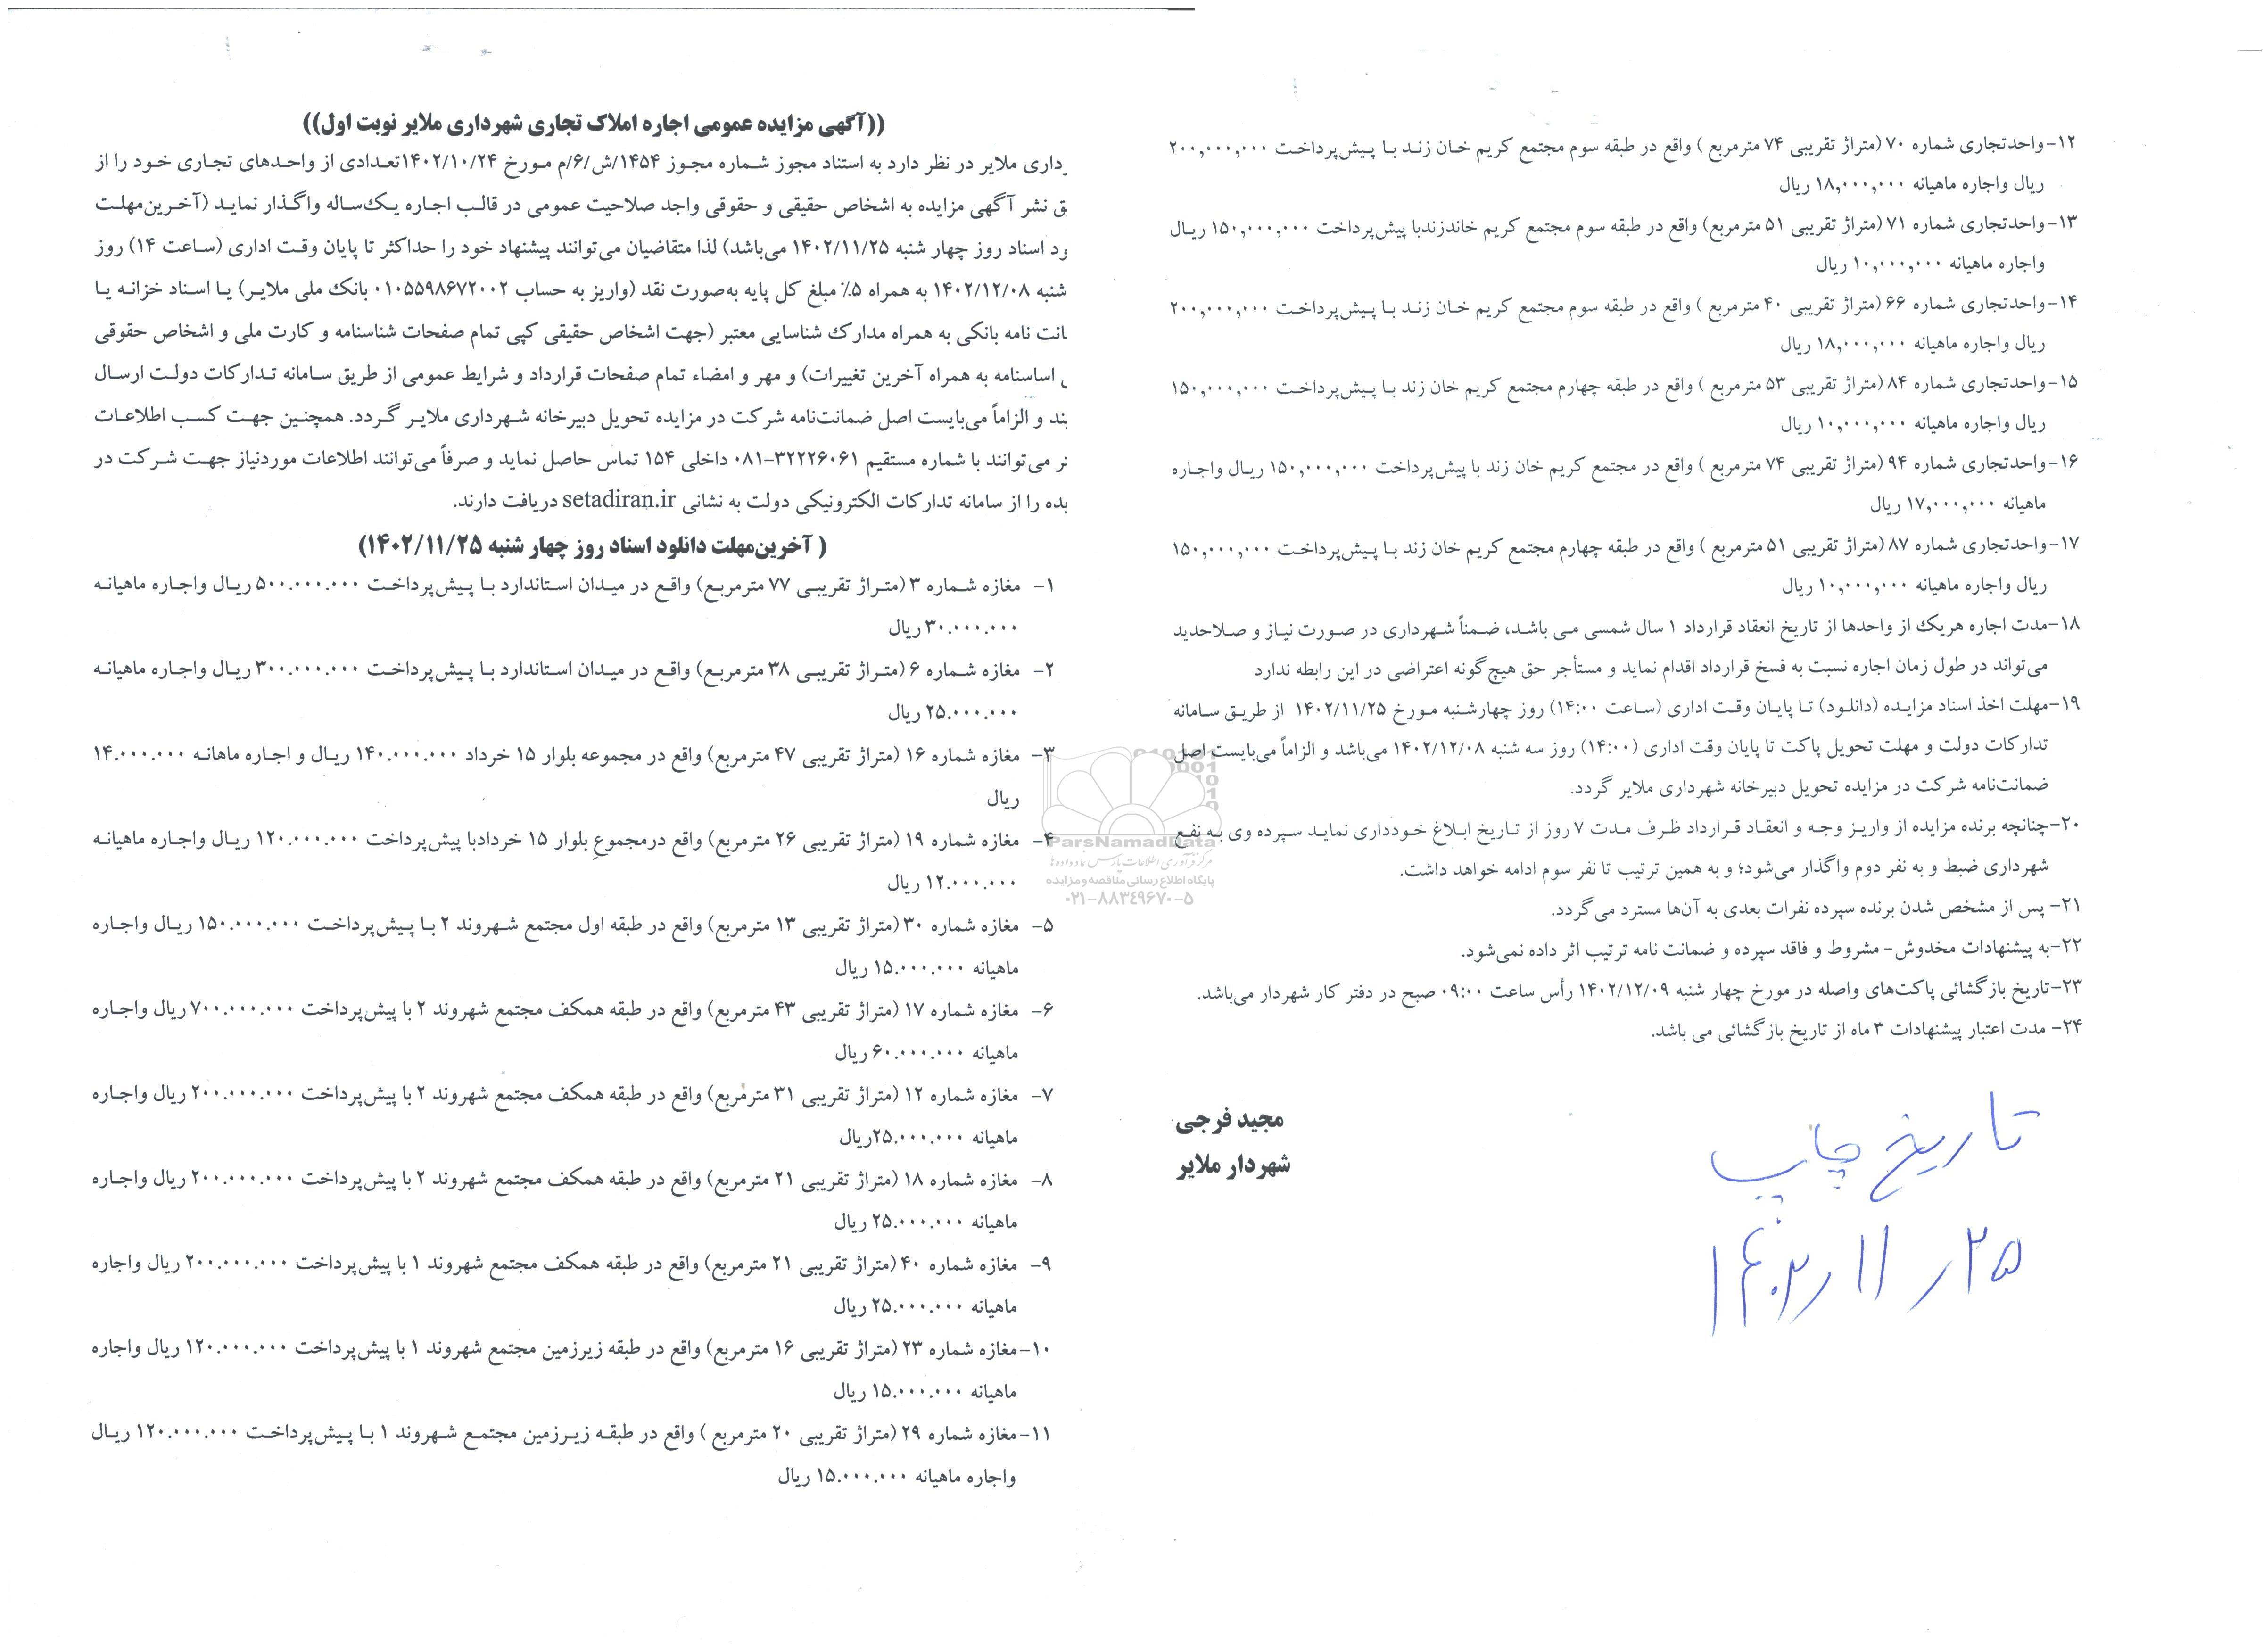 ((آگهی مزایده عمومی اجاره املاک تجاری شهرداری ملایر نوبت اول))
رداری ملایر در نظر دارد به استناد مجوز شماره مجوز ۱۴۵۴/ش/۶/م مورخ ۱۴۰۲/۱۰/۲۴تعدادی از واحدهای تجاری خود را از
ق نشر آگهی مزایده به اشخاص حقیقی و حقوقی واجد صلاحیت عمومی در قالب اجاره یک‌ساله واگذار نماید (آخرین‌مهلت
ود اسناد روز چهار شنبه ۱۴۰۲/۱۱/۲۵ می‌باشد) لذا متقاضیان می‌توانند پیشنهاد خود را حداکثر تا پایان وقت اداری (ساعت ۱۴) روز
شنبه ۱۴۰۲/۱۲/۰۸ به همراه ۵٪ مبلغ کل پایه به‌صورت نقد (واریز به حساب ۰۱۰۵۵۹۸۶۷۲۰۰۲ بانک ملی ملایر) یا اسناد خزانه یا
انت نامه بانکی به همراه مدارک شناسایی معتبر (جهت اشخاص حقیقی کپی تمام صفحات شناسنامه و کارت ملی و اشخاص حقوقی
اساسنامه به همراه آخرین تغییرات) و مهر و امضاء تمام صفحات قرارداد و شرایط عمومی از طریق سامانه تدارکات دولت ارسال
ند و الزاماً می‌بایست اصل ضمانت‌نامه شرکت در مزایده تحویل دبیرخانه شهرداری ملایر گردد. همچنین جهت کسب اطلاعات
تر می‌توانند با شماره مستقیم ۳۲۲۲۶۰۶۱-۰۸۱ داخلی ۱۵۴ تماس حاصل نماید و صرفاً می‌توانند اطلاعات موردنیاز جهت شرکت در
یده را از سامانه تدارکات الکترونیکی دولت به نشانی setadiran.ir دریافت دارند.
( آخرین‌مهلت دانلود اسناد روز چهار شنبه ۱۴۰۲/۱۱/۲۵)
۱- مغازه شماره ۳ (متراژ تقریبی ۷۷ مترمربع) واقع در میدان استاندارد با پیش‌پرداخت ۵۰۰.۰۰۰.۰۰۰ ریال واجاره ماهیانه
۳۰.۰۰۰.۰۰۰ ریال
۲- مغازه شماره ۶ (متراژ تقریبی ۳۸ مترمربع) واقع در میدان استاندارد با پیش‌پرداخت ۳۰۰.۰۰۰.۰۰۰ ریال واجاره ماهیانه
۲۵.۰۰۰.۰۰۰ ریال
۳- مغازه شماره ۱۶ (متراژ تقریبی ۴۷ مترمربع) واقع در مجموعه بلوار ۱۵ خرداد ۱۴۰.۰۰۰.۰۰۰ ریال و اجاره ماهانه ۱۴.۰۰۰.۰۰۰
ریال
۴- مغازه شماره ۱۹ (متراژ تقریبی ۲۶ مترمربع) واقع درمجموعِ بلوار ۱۵ خردادبا پیش‌پرداخت ۱۲۰.۰۰۰.۰۰۰ ریال واجاره ماهیانه
۱۲.۰۰۰.۰۰۰ ریال
۵- مغازه شماره ۳۰ (متراژ تقریبی ۱۳ مترمربع) واقع در طبقه اول مجتمع شهروند ۲ با پیش‌پرداخت ۱۵۰.۰۰۰.۰۰۰ ریال واجاره
ماهیانه ۱۵.۰۰۰.۰۰۰ ریال
۶- مغازه شماره ۱۷ (متراژ تقریبی ۴۳ مترمربع) واقع در طبقه همکف مجتمع شهروند ۲ با پیش‌پرداخت ۷۰۰.۰۰۰.۰۰۰ ریال واجاره
ماهیانه ۶۰.۰۰۰.۰۰۰ ریال
۷- مغازه شماره ۱۲ (متراژ تقریبی ۳۱ مترمربع) واقع در طبقه همکف مجتمع شهروند ۲ با پیش‌پرداخت ۲۰۰.۰۰۰.۰۰۰ ریال واجاره
ماهیانه ۲۵.۰۰۰.۰۰۰ریال
۸- مغازه شماره ۱۸ (متراژ تقریبی ۲۱ مترمربع) واقع در طبقه همکف مجتمع شهروند ۲ با پیش‌پرداخت ۲۰۰.۰۰۰.۰۰۰ ریال واجاره
ماهیانه ۲۵.۰۰۰.۰۰۰ ریال
۹- مغازه شماره ۴۰ (متراژ تقریبی ۲۱ مترمربع) واقع در طبقه همکف مجتمع شهروند ۱ با پیش‌پرداخت ۲۰۰.۰۰۰.۰۰۰ ریال واجاره
ماهیانه ۲۵.۰۰۰.۰۰۰ ریال
۱۰-مغازه شماره ۲۳ (متراژ تقریبی ۱۶ مترمربع) واقع در طبقه زیرزمین مجتمع شهروند ۱ با پیش‌پرداخت ۱۲۰.۰۰۰.۰۰۰ ریال واجاره
ماهیانه ۱۵.۰۰۰.۰۰۰ ریال
۱۱-مغازه شماره ۲۹ (متراژ تقریبی ۲۰ مترمربع ) واقع در طبقه زیرزمین مجتمع شهروند ۱ با پیش‌پرداخت ۱۲۰.۰۰۰.۰۰۰ ریال
واجاره ماهیانه ۱۵.۰۰۰.۰۰۰ ریال
۱۲-واحدتجاری شماره ۷۰ (متراژ تقریبی ۷۴ مترمربع ) واقع در طبقه سوم مجتمع کریم خان زند با پیش‌پرداخت ۲۰۰,۰۰۰,۰۰۰
ریال واجاره ماهیانه ۱۸,۰۰۰,۰۰۰ ریال
۱۳-واحدتجاری شماره ۷۱ (متراژ تقریبی ۵۱ مترمربع) واقع در طبقه سوم مجتمع کریم خاندزندبا پیش‌پرداخت ۱۵۰,۰۰۰,۰۰۰ ریال
واجاره ماهیانه ۱۰,۰۰۰,۰۰۰ ریال
۱۴-واحدتجاری شماره ۶۶ (متراژ تقریبی ۴۰ مترمربع ) واقع در طبقه سوم مجتمع کریم خان زند با پیش‌پرداخت ۲۰۰,۰۰۰,۰۰۰
ریال واجاره ماهیانه ۱۸,۰۰۰,۰۰۰ ریال
۱۵-واحدتجاری شماره ۸۴ (متراژ تقریبی ۵۳ مترمربع ) واقع در طبقه چهارم مجتمع کریم خان زند با پیش‌پرداخت ۱۵۰,۰۰۰,۰۰۰
ریال واجاره ماهیانه ۱۰,۰۰۰,۰۰۰ ریال
۱۶-واحدتجاری شماره ۹۴ (متراژ تقریبی ۷۴ مترمربع ) واقع در مجتمع کریم خان زند با پیش‌پرداخت ۱۵۰,۰۰۰,۰۰۰ ریال واجاره
ماهیانه ۱۷,۰۰۰,۰۰۰ ریال
۱۷-واحدتجاری شماره ۸۷ (متراژ تقریبی ۵۱ مترمربع ) واقع در طبقه چهارم مجتمع کریم خان زند با پیش‌پرداخت ۱۵۰,۰۰۰,۰۰۰
ریال واجاره ماهیانه ۱۰,۰۰۰,۰۰۰ ریال
۱۸-مدت اجاره هریک از واحدها از تاریخ انعقاد قرارداد ۱ سال شمسی می باشد، ضمناً شهرداری در صورت نیاز و صلاحدید
می‌تواند در طول زمان اجاره نسبت به فسخ قرارداد اقدام نماید و مستأجر حق هیچ‌گونه اعتراضی در این رابطه ندارد
۱۹-مهلت اخذ اسناد مزایده (دانلود) تا پایان وقت اداری (ساعت ۱۴:۰۰) روز چهارشنبه مورخ ۱۴۰۲/۱۱/۲۵ از طریق سامانه
تدارکات دولت و مهلت تحویل پاکت تا پایان وقت اداری (۱۴:۰۰) روز سه شنبه ۱۴۰۲/۱۲/۰۸ می‌باشد و الزاماً می‌بایست اصل
ضمانت‌نامه شرکت در مزایده تحویل دبیرخانه شهرداری ملایر گردد.
۲۰-چنانچه برنده مزایده از واریز وجه و انعقاد قرارداد ظرف مدت ۷ روز از تاریخ ابلاغ خودداری نماید سپرده وی به نفع
شهرداری ضبط و به نفر دوم واگذار می‌شود؛ و به همین ترتیب تا نفر سوم ادامه خواهد داشت.
۲۱- پس از مشخص شدن برنده سپرده نفرات بعدی به آن‌ها مسترد می‌گردد.
۲۲-به پیشنهادات مخدوش- مشروط و فاقد سپرده و ضمانت نامه ترتیب اثر داده نمی‌شود.
۲۳-تاریخ بازگشائی پاکت‌های واصله در مورخ چهار شنبه ۱۴۰۲/۱۲/۰۹ رأس ساعت ۰۹:۰۰ صبح در دفتر کار شهردار می‌باشد.
۲۴- مدت اعتبار پیشنهادات ۳ ماه از تاریخ بازگشائی می باشد.
مجید فرجی
شهردار ملایر
تاریخ چاپ
۲۵ / ۱۱ / ۱۴۰۲
ParsNamadData
مرکز فرآوری اطلاعات پارس نماد داده‌ها
پایگاه اطلاع رسانی مناقصه و مزایده
۰۲۱-۸۸۳۴۹۶۷۰-۵